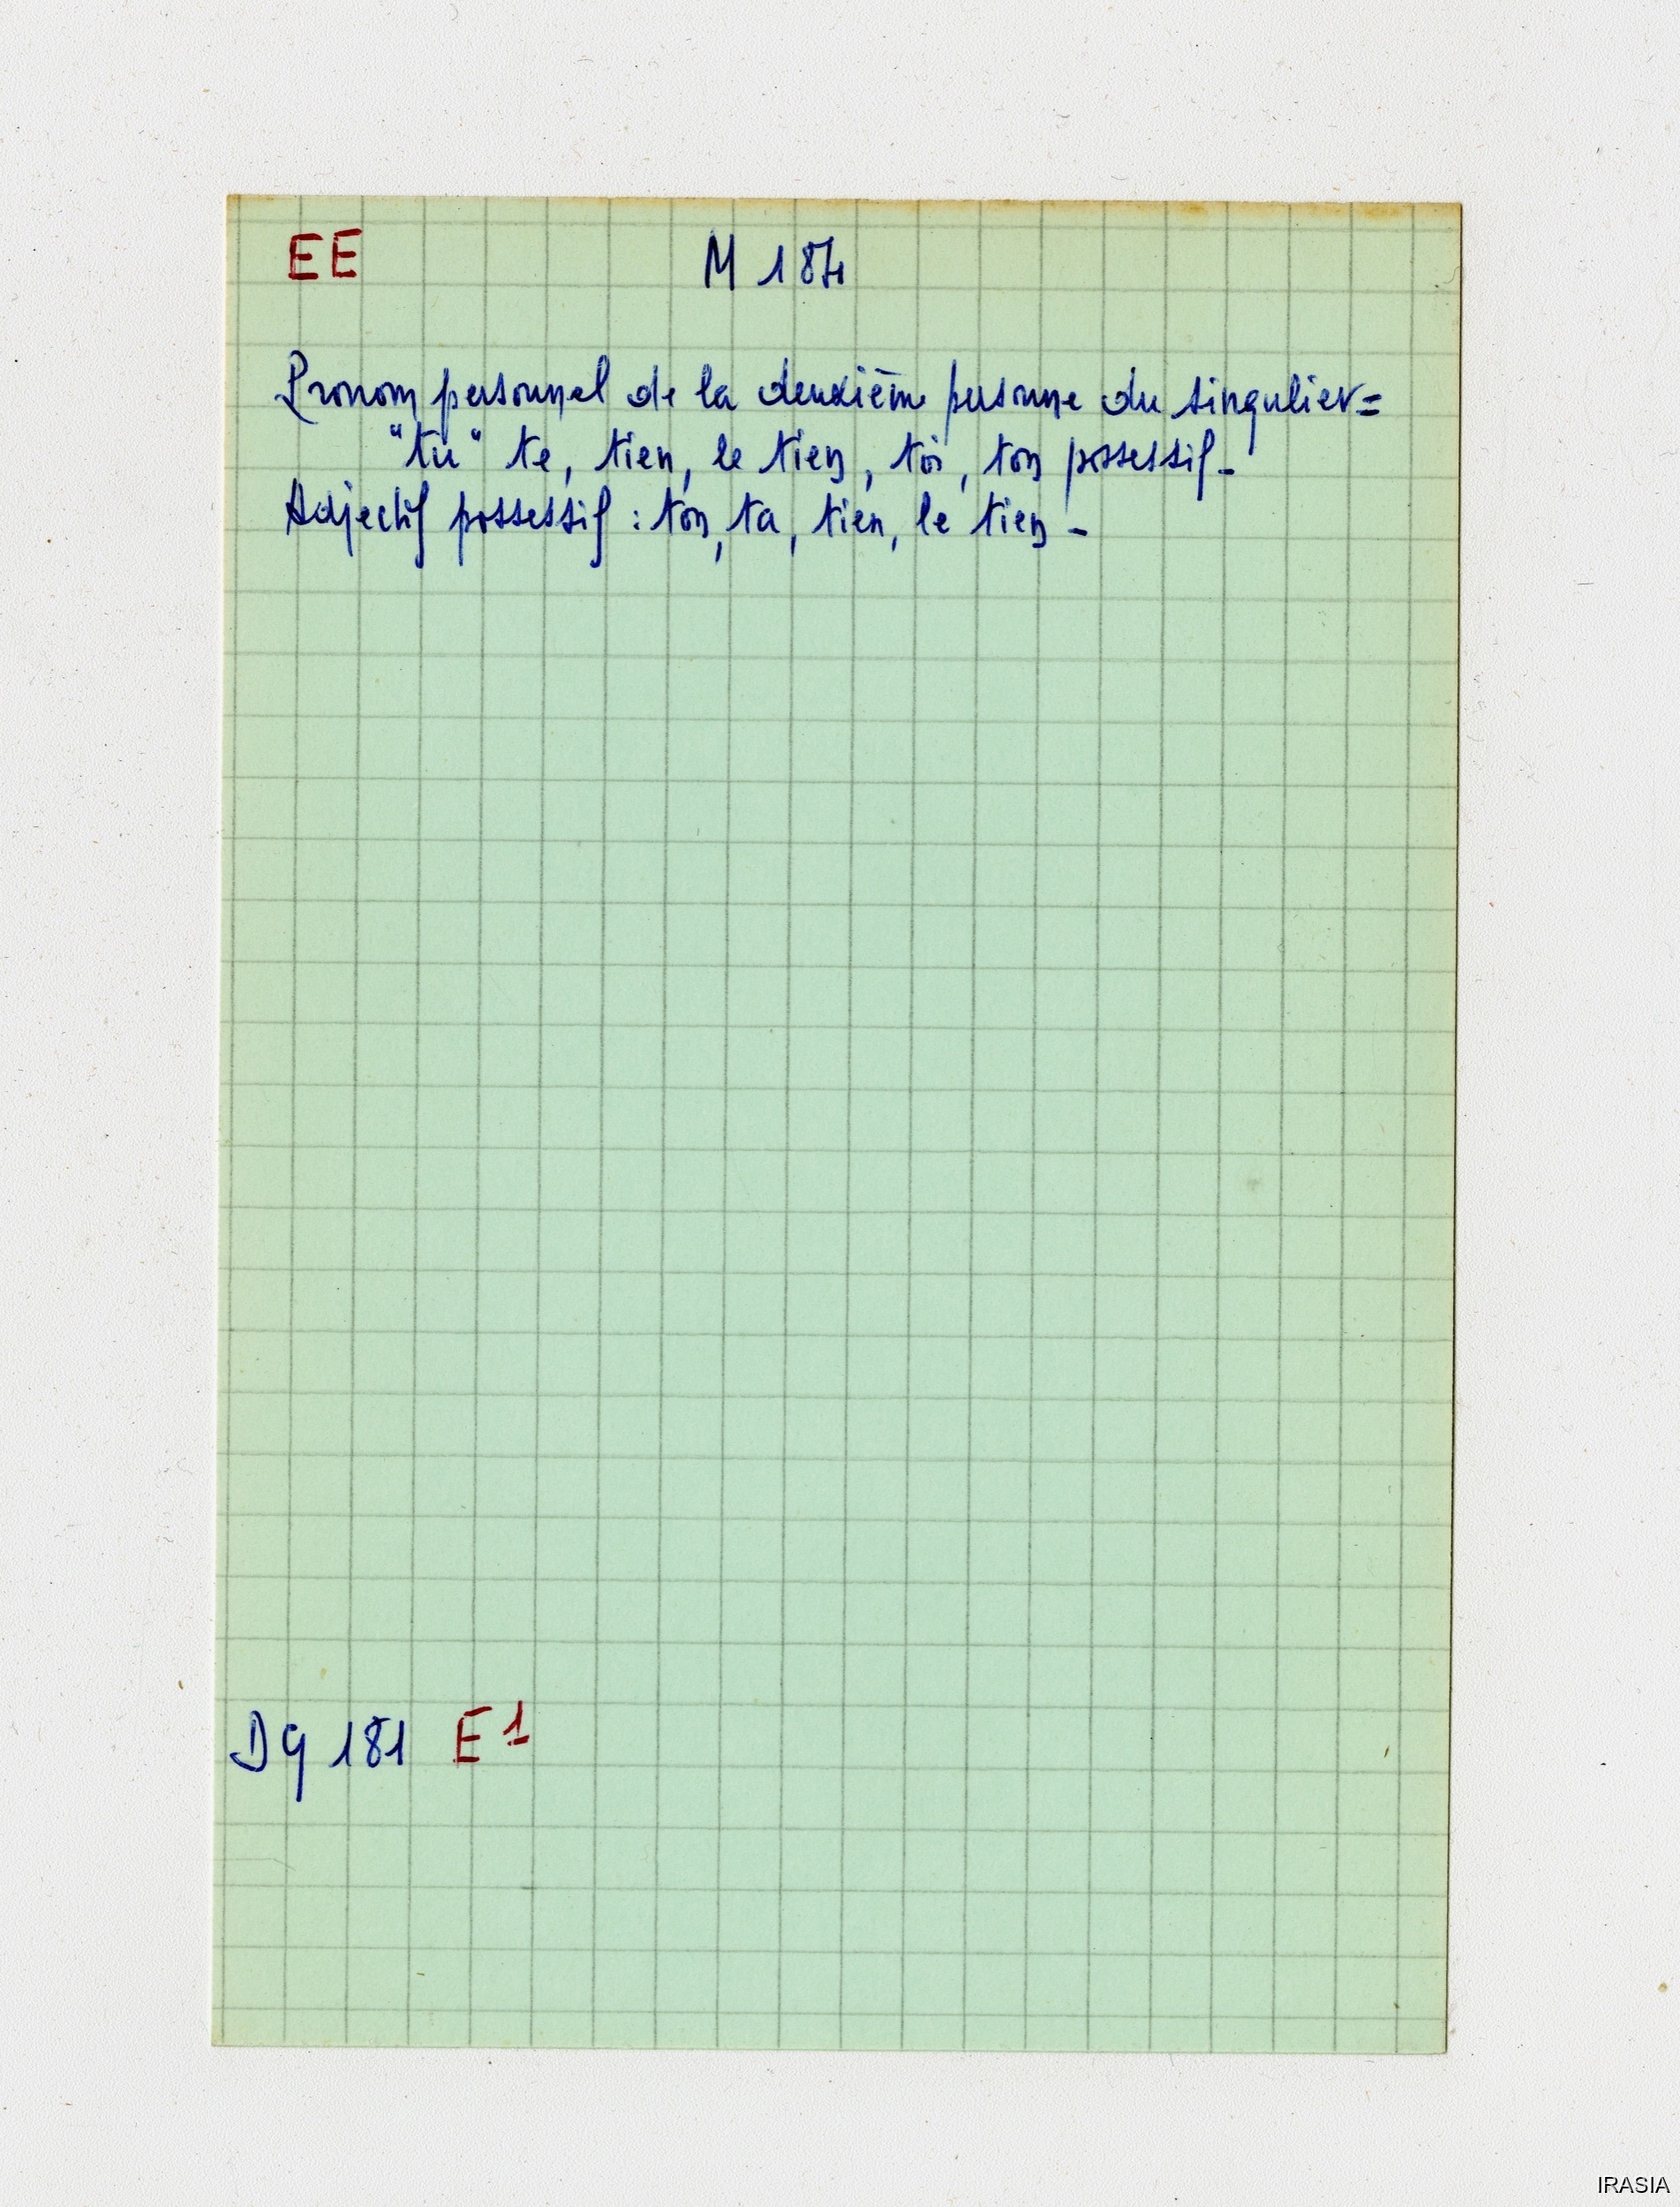 EE M 184
Pronom personnel de la deuxième personne du singulier =
"tu" te, tien, le tien, toi, ton possessif -
Adjectif possessif : ton, ta, tien, le tien -
Dg 181 E1
IRASIA